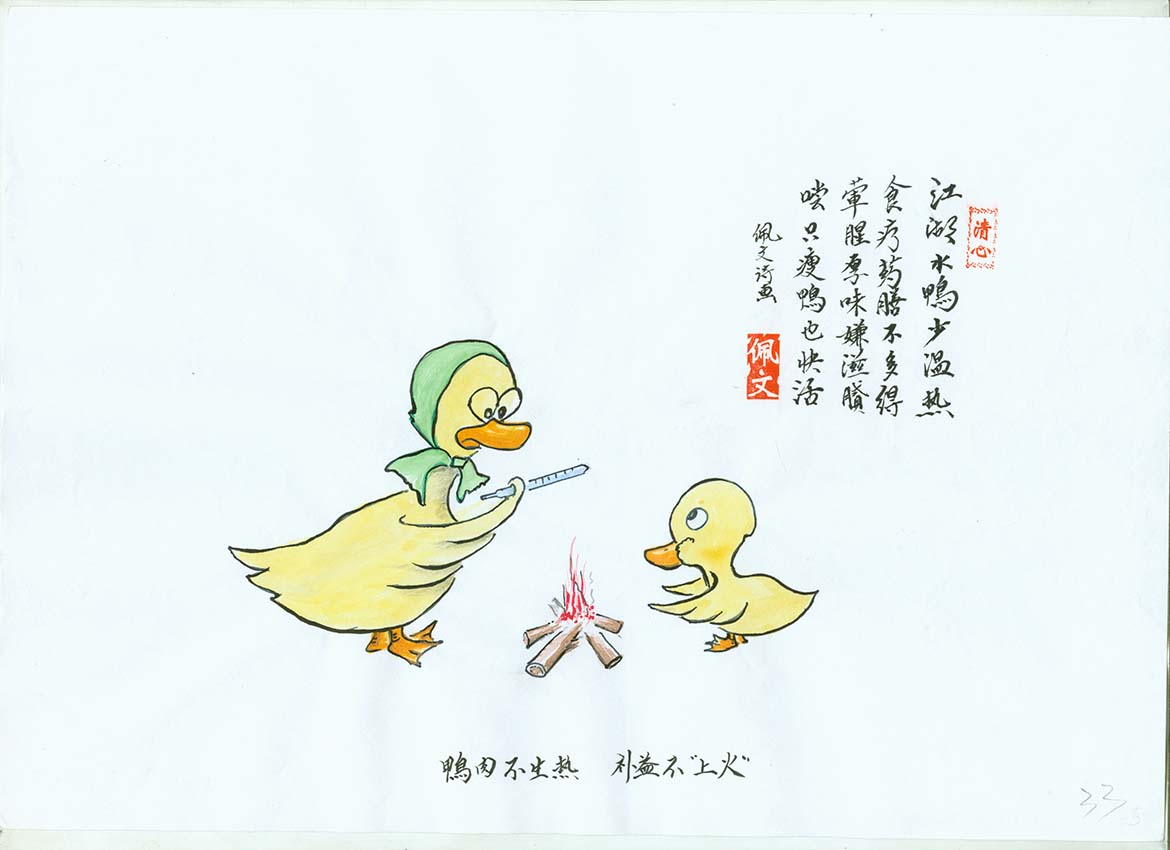 清心
江湖水鴨少温热
食疗药膳不多得
荤腥厚味嫌滋膩
嚐只瘦鴨也快活
佩文诗画
佩文
鴨肉不生热 补益不"上火"
33